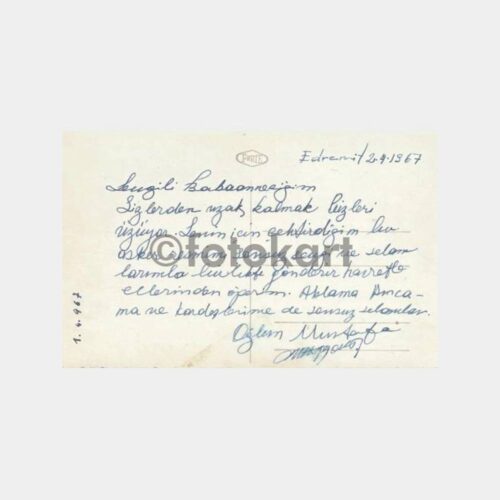 Edremit/2.4.1967
Sevgili Babaanneciğim
Sizlerden uzak kalmak bizleri
üzüyor. Senin için çektirdiğim bu
asker resmimi sonsuz sevgi ve selam
larımla birlikte gönderir hasretle
ellerinden öperim. Ablama Amca-
ma ve kardeşlerime de sonsuz selamlar.
Oğlun Mustafa
1.4.967
©fotokart